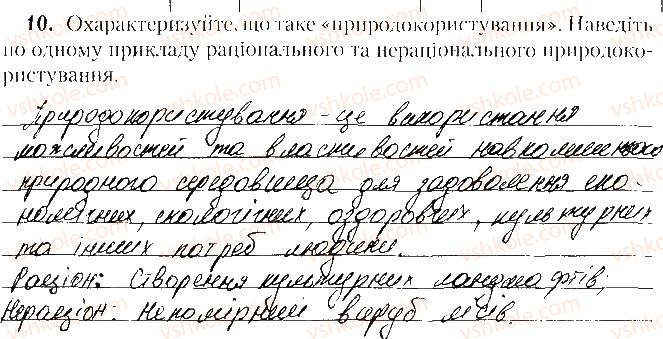 10. Охарактеризуйте, що таке «природокористування». Наведіть
по одному прикладу раціонального та нераціонального природоко-
ристування.
Природокористування - це використання
можливостей та властивостей навколишнього
природного середовища для задоволення еко-
номічних, екологічних, оздоровчих, культурних
та інших потреб людини.
Раціон: Створення культурних ландшафтів;
Нераціон: Непомірний вируб лісів.